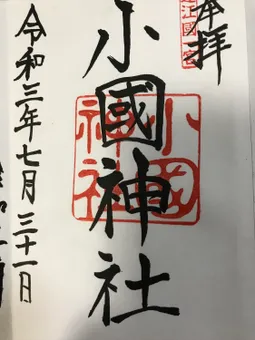 奉拝
遠江國一宮
小國神社
小國神社
令和三年七月三十一日